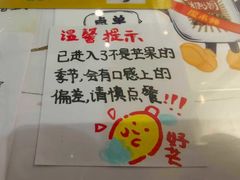 点单
温馨提示
已进入了不是芒果的
季节,会有口感上的
偏差,请慎点餐!!!
好芒